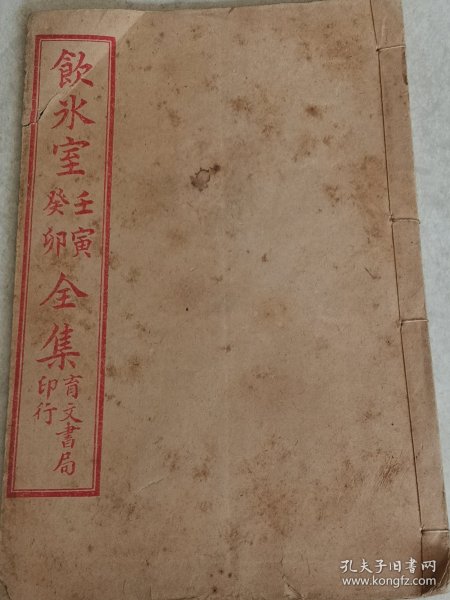 飲氷室壬寅癸卯全集
育文書局印行
孔夫子旧书网
www.kongfz.com